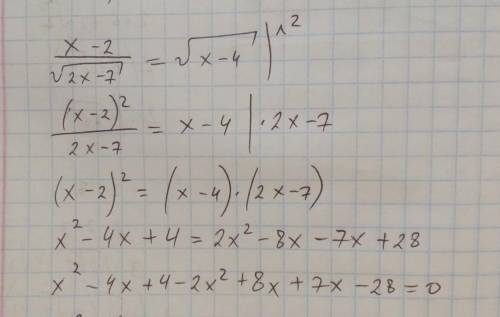 x-2/√(2x-7) = √(x-4) |^2
(x-2)²/2x-7 = x-4 | ·2x-7
(x-2)² = (x-4)·(2x-7)
x²-4x+4 = 2x²-8x-7x+28
x²-4x+4-2x²+8x+7x-28=0